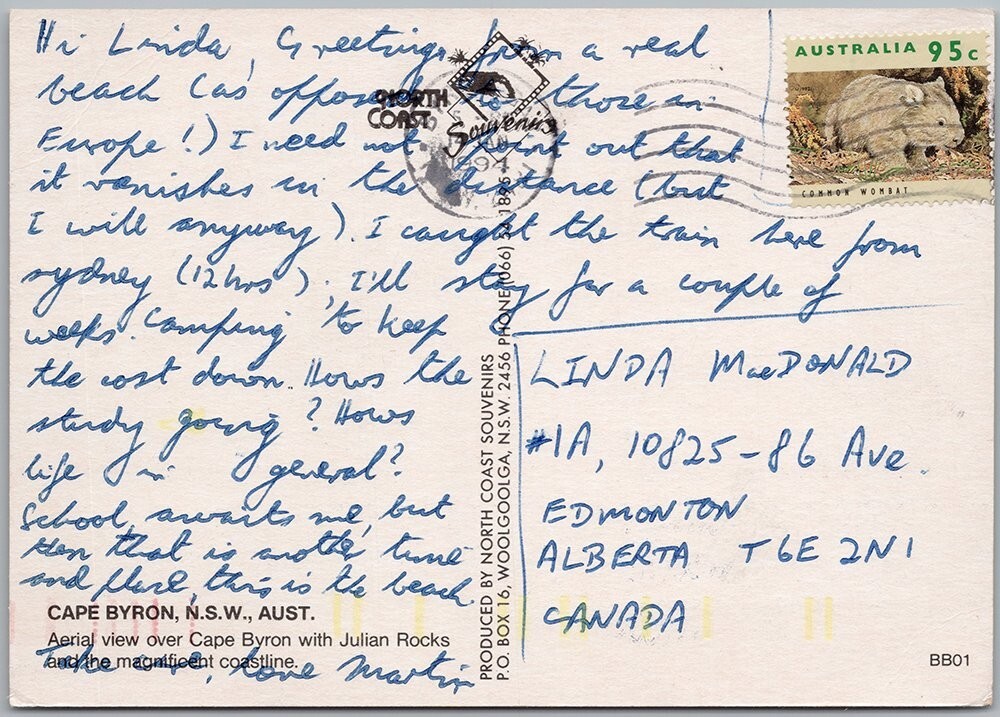 Hi Linda, Greetings from a real
beach (as opposed to those in
Europe!) I need not point out that
it vanishes in the distance (but
I will anyway). I caught the train here from
sydney (12hrs). I'll stay for a couple of
weeks. Camping to keep
the cost down. Hows the
study going? Hows
life in general?
School, awaits me, but
then that is another time
and place, this is the beach.
Take care, love Martin
CAPE BYRON, N.S.W., AUST.
Aerial view over Cape Byron with Julian Rocks
and the magnificent coastline.
NORTH
COAST
Souvenirs
PRODUCED BY NORTH COAST SOUVENIRS
P.O. BOX 16, WOOLGOOLGA, N.S.W. 2456 PHONE (066)
AUSTRALIA 95c
COMMON WOMBAT
LINDA MacDONALD
#1A, 10825-86 Ave.
EDMONTON
ALBERTA T6E 2N1
CANADA
BB01